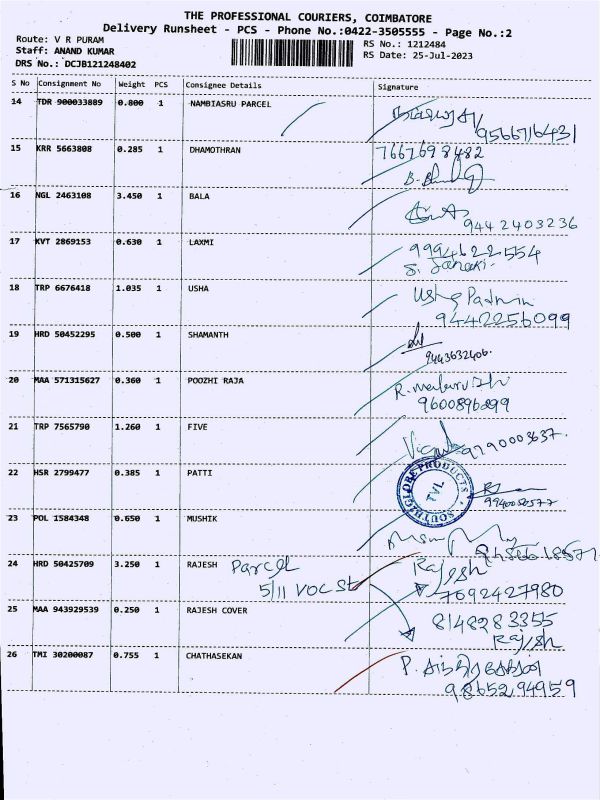 THE PROFESSIONAL COURIERS, COIMBATORE
Delivery Runsheet - PCS - Phone No.:0422-3505555 - Page No.:2
Route: V R PURAM
RS No.: 1212484
Staff: ANAND KUMAR
RS Date: 25-Jul-2023
DRS No.: DCJB121248402
S No Consignment No Weight PCS Consignee Details Signature
14 TDR 900033889 0.800 1 NAMBIASRU PARCEL
9566716431
15 KRR 5663808 0.285 1 DHAMOTHRAN 7667698482
16 NGL 2463108 3.450 1 BALA
9442403236
17 KVT 2869153 0.630 1 LAXMI 9994622554
S. Janaki
18 TRP 6676418 1.035 1 USHA Usha
9442256099
19 HRD 50452295 0.500 1 SHAMANTH
9443632406.
20 MAA 571315627 0.360 1 POOZHI RAJA R.
9600896899
21 TRP 7565790 1.260 1 FIVE 9790003637.
22 HSR 2799477 0.385 1 PATTI
SOUTH2GLOBE PRODUCTS
TVL
9940050577
23 POL 1584348 0.650 1 MUSHIK
24 HRD 50425709 3.250 1 RAJESH Parcel Rajesh
5/11 VOC St 7692427980
25 MAA 943929539 0.250 1 RAJESH COVER 8148283355
Rajesh
26 TMI 30200087 0.755 1 CHATHASEKAN P.
9865294959